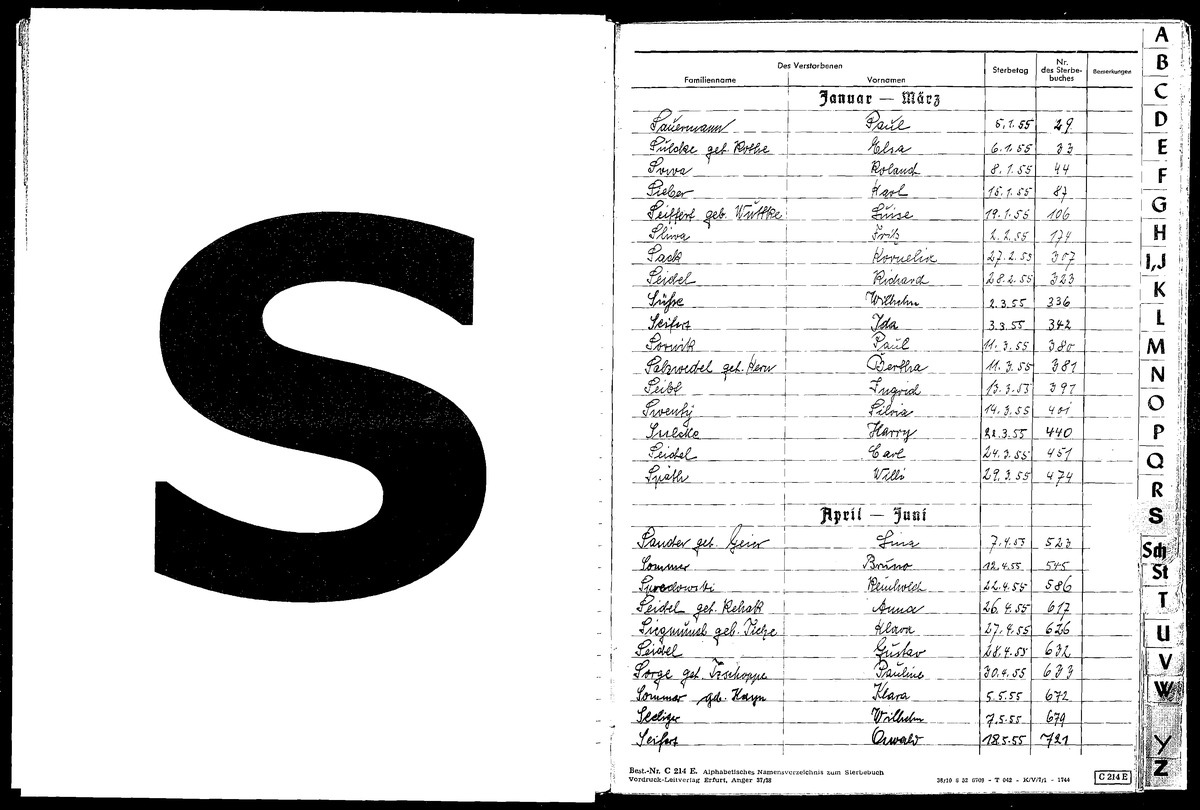 S
Des Verstorbenen
Familienname Vornamen Sterbetag Nr. des Sterbe-buches Bemerkungen
Januar — März
Sauermann Paul 5.1.55 29
geb. Rothe Elsa 6.1.55 33
Sowa Roland 8.1.55 44
Sieber Karl 15.1.55 87
Seiffert geb. Wuttke Luise 19.1.55 106
Sliwa Fritz 2.2.55 174
Sack Kornelia 27.2.55 307
Seidel Richard 28.2.55 323
Süße Wilhelm 2.3.55 336
Seifert Ida 3.3.55 342
Sornik Paul 11.3.55 380
Salzwedel geb. Bertha 11.3.55 381
Seibt Ingrid 13.3.55 391
Silvia 14.3.55 401
Harry 22.3.55 440
Seidel Carl 24.3.55 451
Späth Willi 29.3.55 474
April — Juni
Sander geb. Geier Lina 7.4.55 523
Sommer Bruno 12.4.55 545
Reinhold 22.4.55 586
Seidel geb. Rehak Anna 26.4.55 617
Siegmund geb. Klara 27.4.55 626
Seidel Gustav 28.4.55 632
Sorge geb. Tzschoppe Pauline 30.4.55 633
Sommer geb. Hayn Klara 5.5.55 672
Seeliger Wilhelm 7.5.55 679
Seifert Oswald 18.5.55 721
Best.-Nr. C 214 E. Alphabetisches Namensverzeichnis zum Sterbebuch
Vordruck-Leitverlag Erfurt, Anger 37/38
38/10 8 52 6708 - T 042 - K/V/7/1 - 1744
C 214 E
A
B
C
D
E
F
G
H
I,J
K
L
M
N
O
P
Q
R
S
Sch
St
T
U
V
W
Y
Z